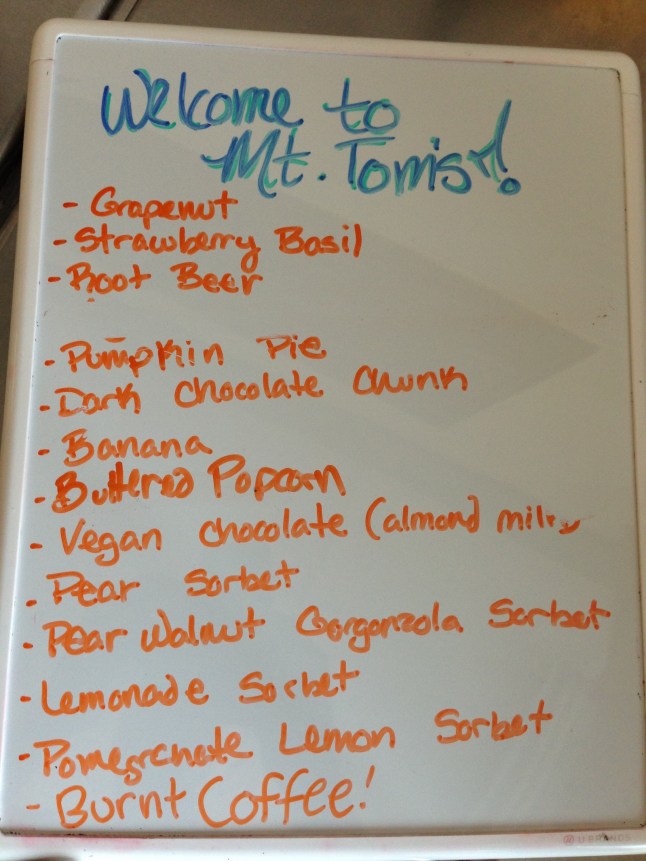 Welcome to
Mt. Tom's!
- Grapenut
- Strawberry Basil
- Root Beer
- Pumpkin Pie
- Dark Chocolate Chunk
- Banana
- Buttered Popcorn
- Vegan chocolate (almond milk
- Pear Sorbet
- Pear Walnut Gorgonzola Sorbet
- Lemonade Sorbet
- Pomegranate Lemon Sorbet
- Burnt Coffee!
U BRANDS